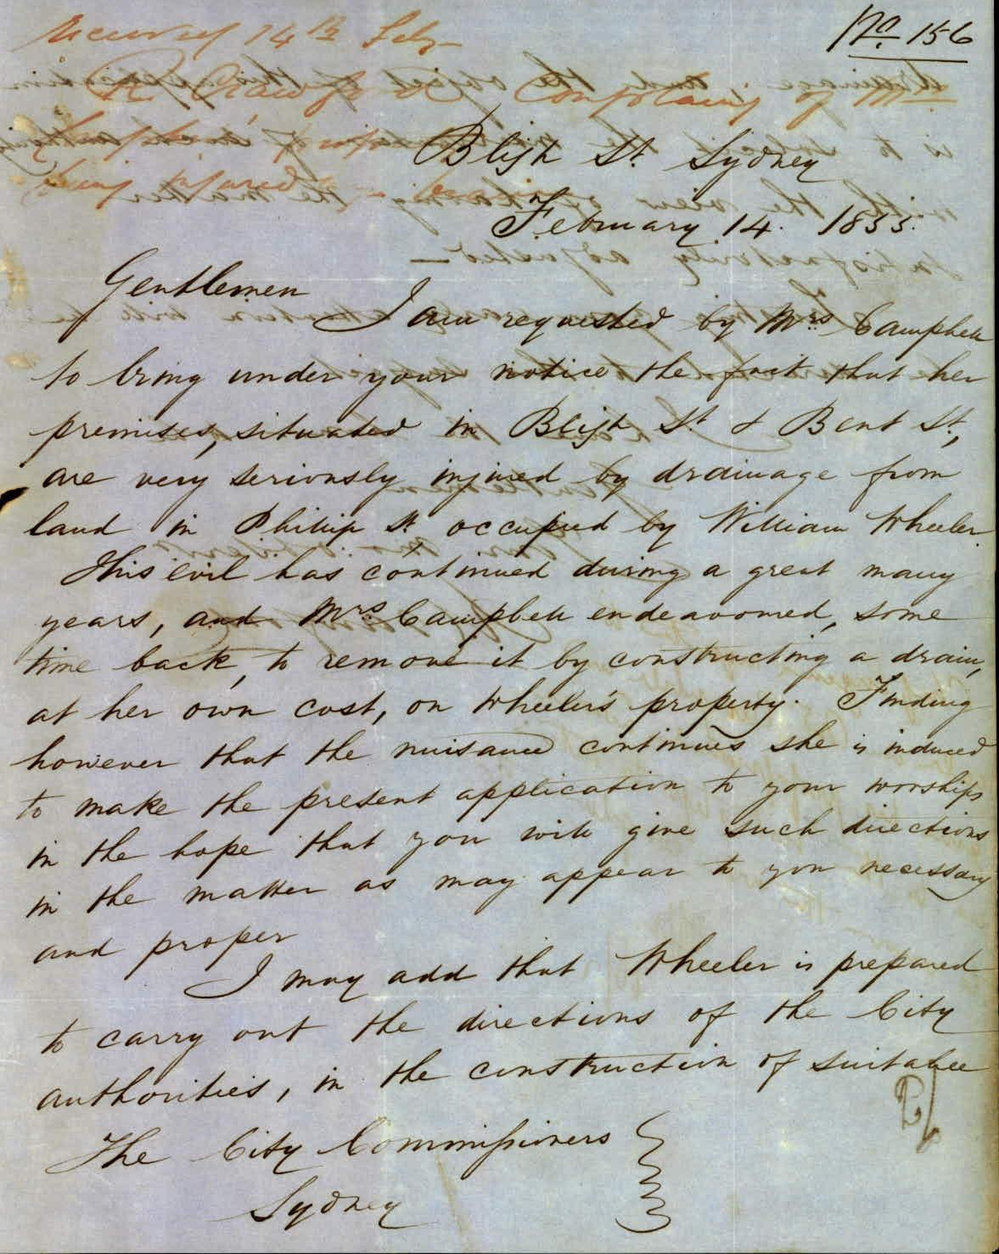 No. 156
Received 14th Feby
Complaining of Mrs
being injured
Bligh St. Sydney
February 14. 1855.
Gentlemen
I am requested by Mrs Campbell
to bring under your notice the fact that her
premises, situated in Bligh St & Bent St,
are very seriously injured by drainage from
land in Philip St occupied by William Wheeler.
This evil has continued during a great many
years, and Mrs Campbell endeavoured, some
time back, to remove it by constructing a drain,
at her own cost, on Wheeler's property. Finding
however that the nuisance continues she is induced
to make the present application to your worships
in the hope that you will give such directions
in the matter as may appear to you necessary
and proper
I may add that Wheeler is prepared
to carry out the directions of the City
authorities, in the construction of suitable
The City Commissioners
Sydney